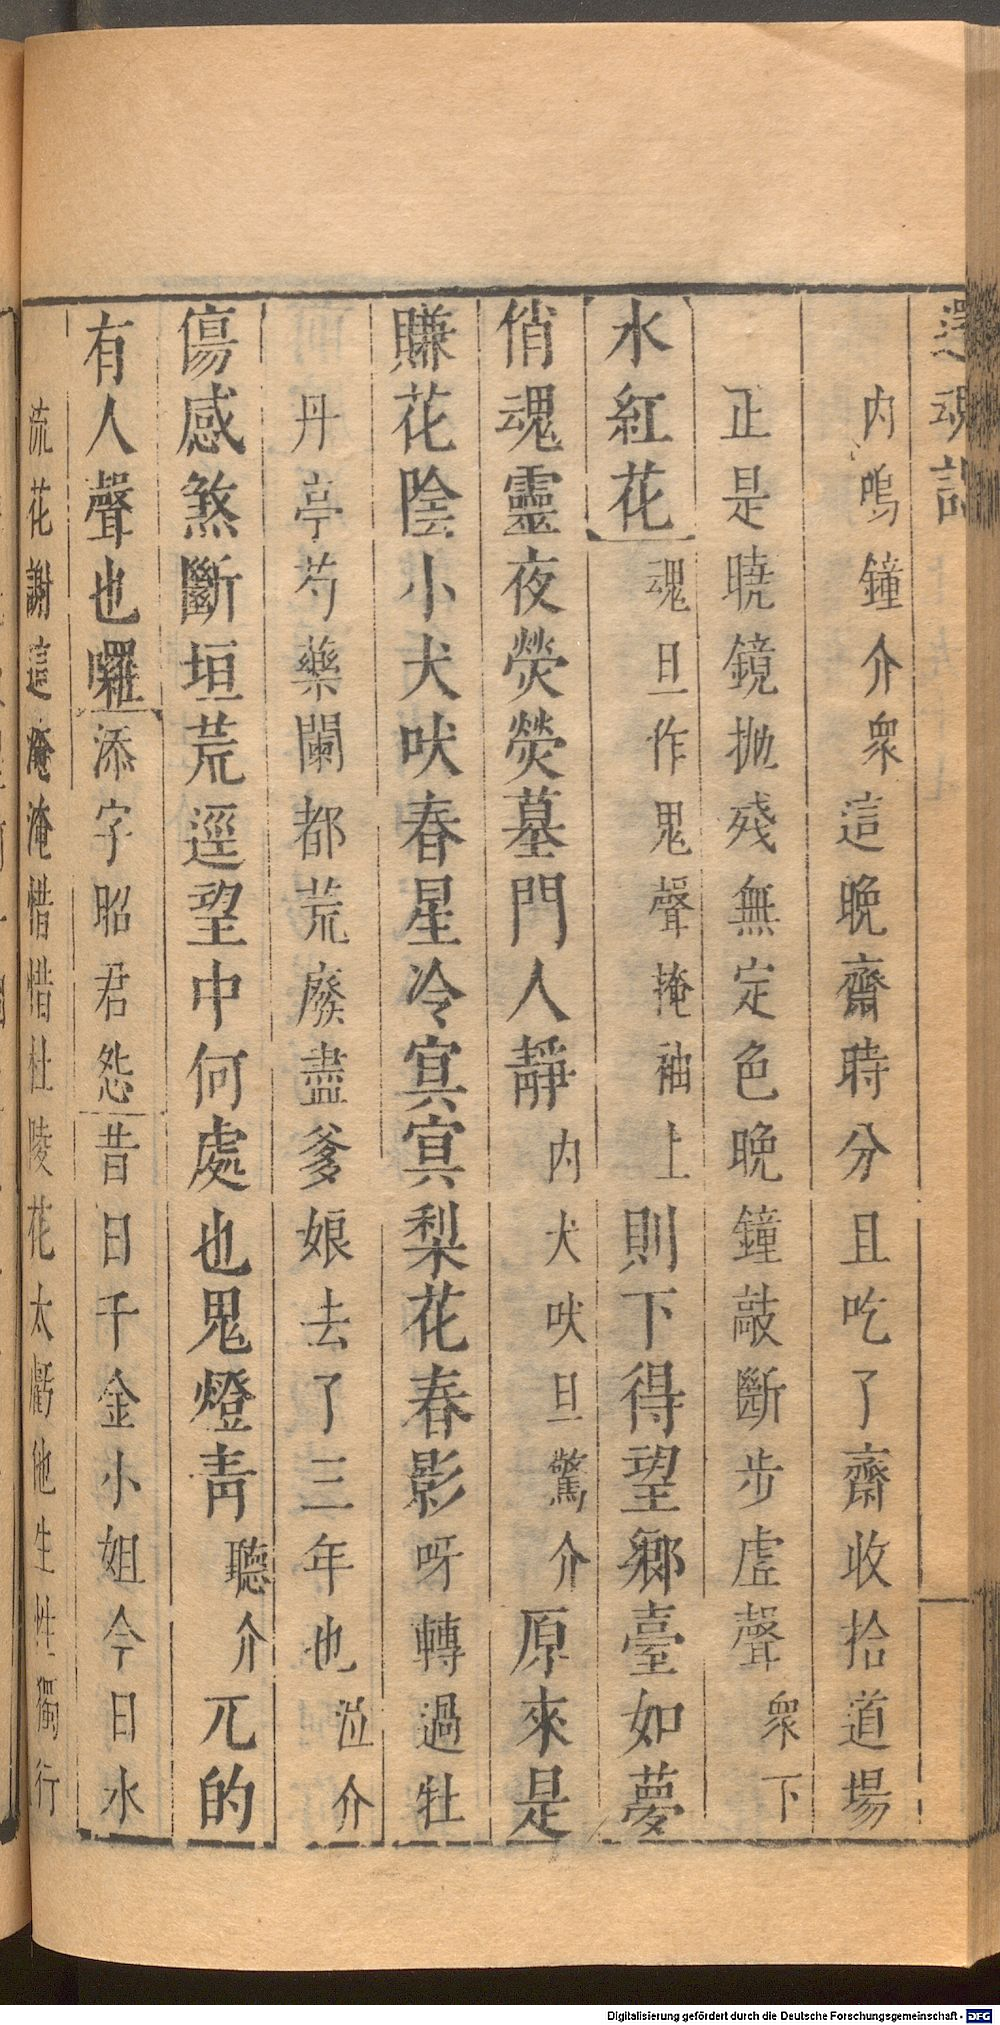 還魂記
内鳴鐘介衆這晚齋時分且吃了齋收拾道場
正是曉鏡抛殘無定色晚鐘敲斷步虛聲衆下
水紅花魂旦作鬼聲掩袖上則下得望鄉臺如夢
俏魂靈夜熒熒墓門人靜内犬吠旦驚介原來是
賺花陰小犬吠春星冷冥冥梨花春影呀轉過牡
丹亭芍藥闌都荒廢盡爹娘去了三年也泣介
傷感煞斷垣荒逕望中何處也鬼燈青聽介兀的
有人聲也囉添字昭君怨昔日千金小姐今日水
流花謝這淹淹惜惜杜陵花太虧他生性獨行
Digitalisierung gefördert durch die Deutsche Forschungsgemeinschaft - DFG